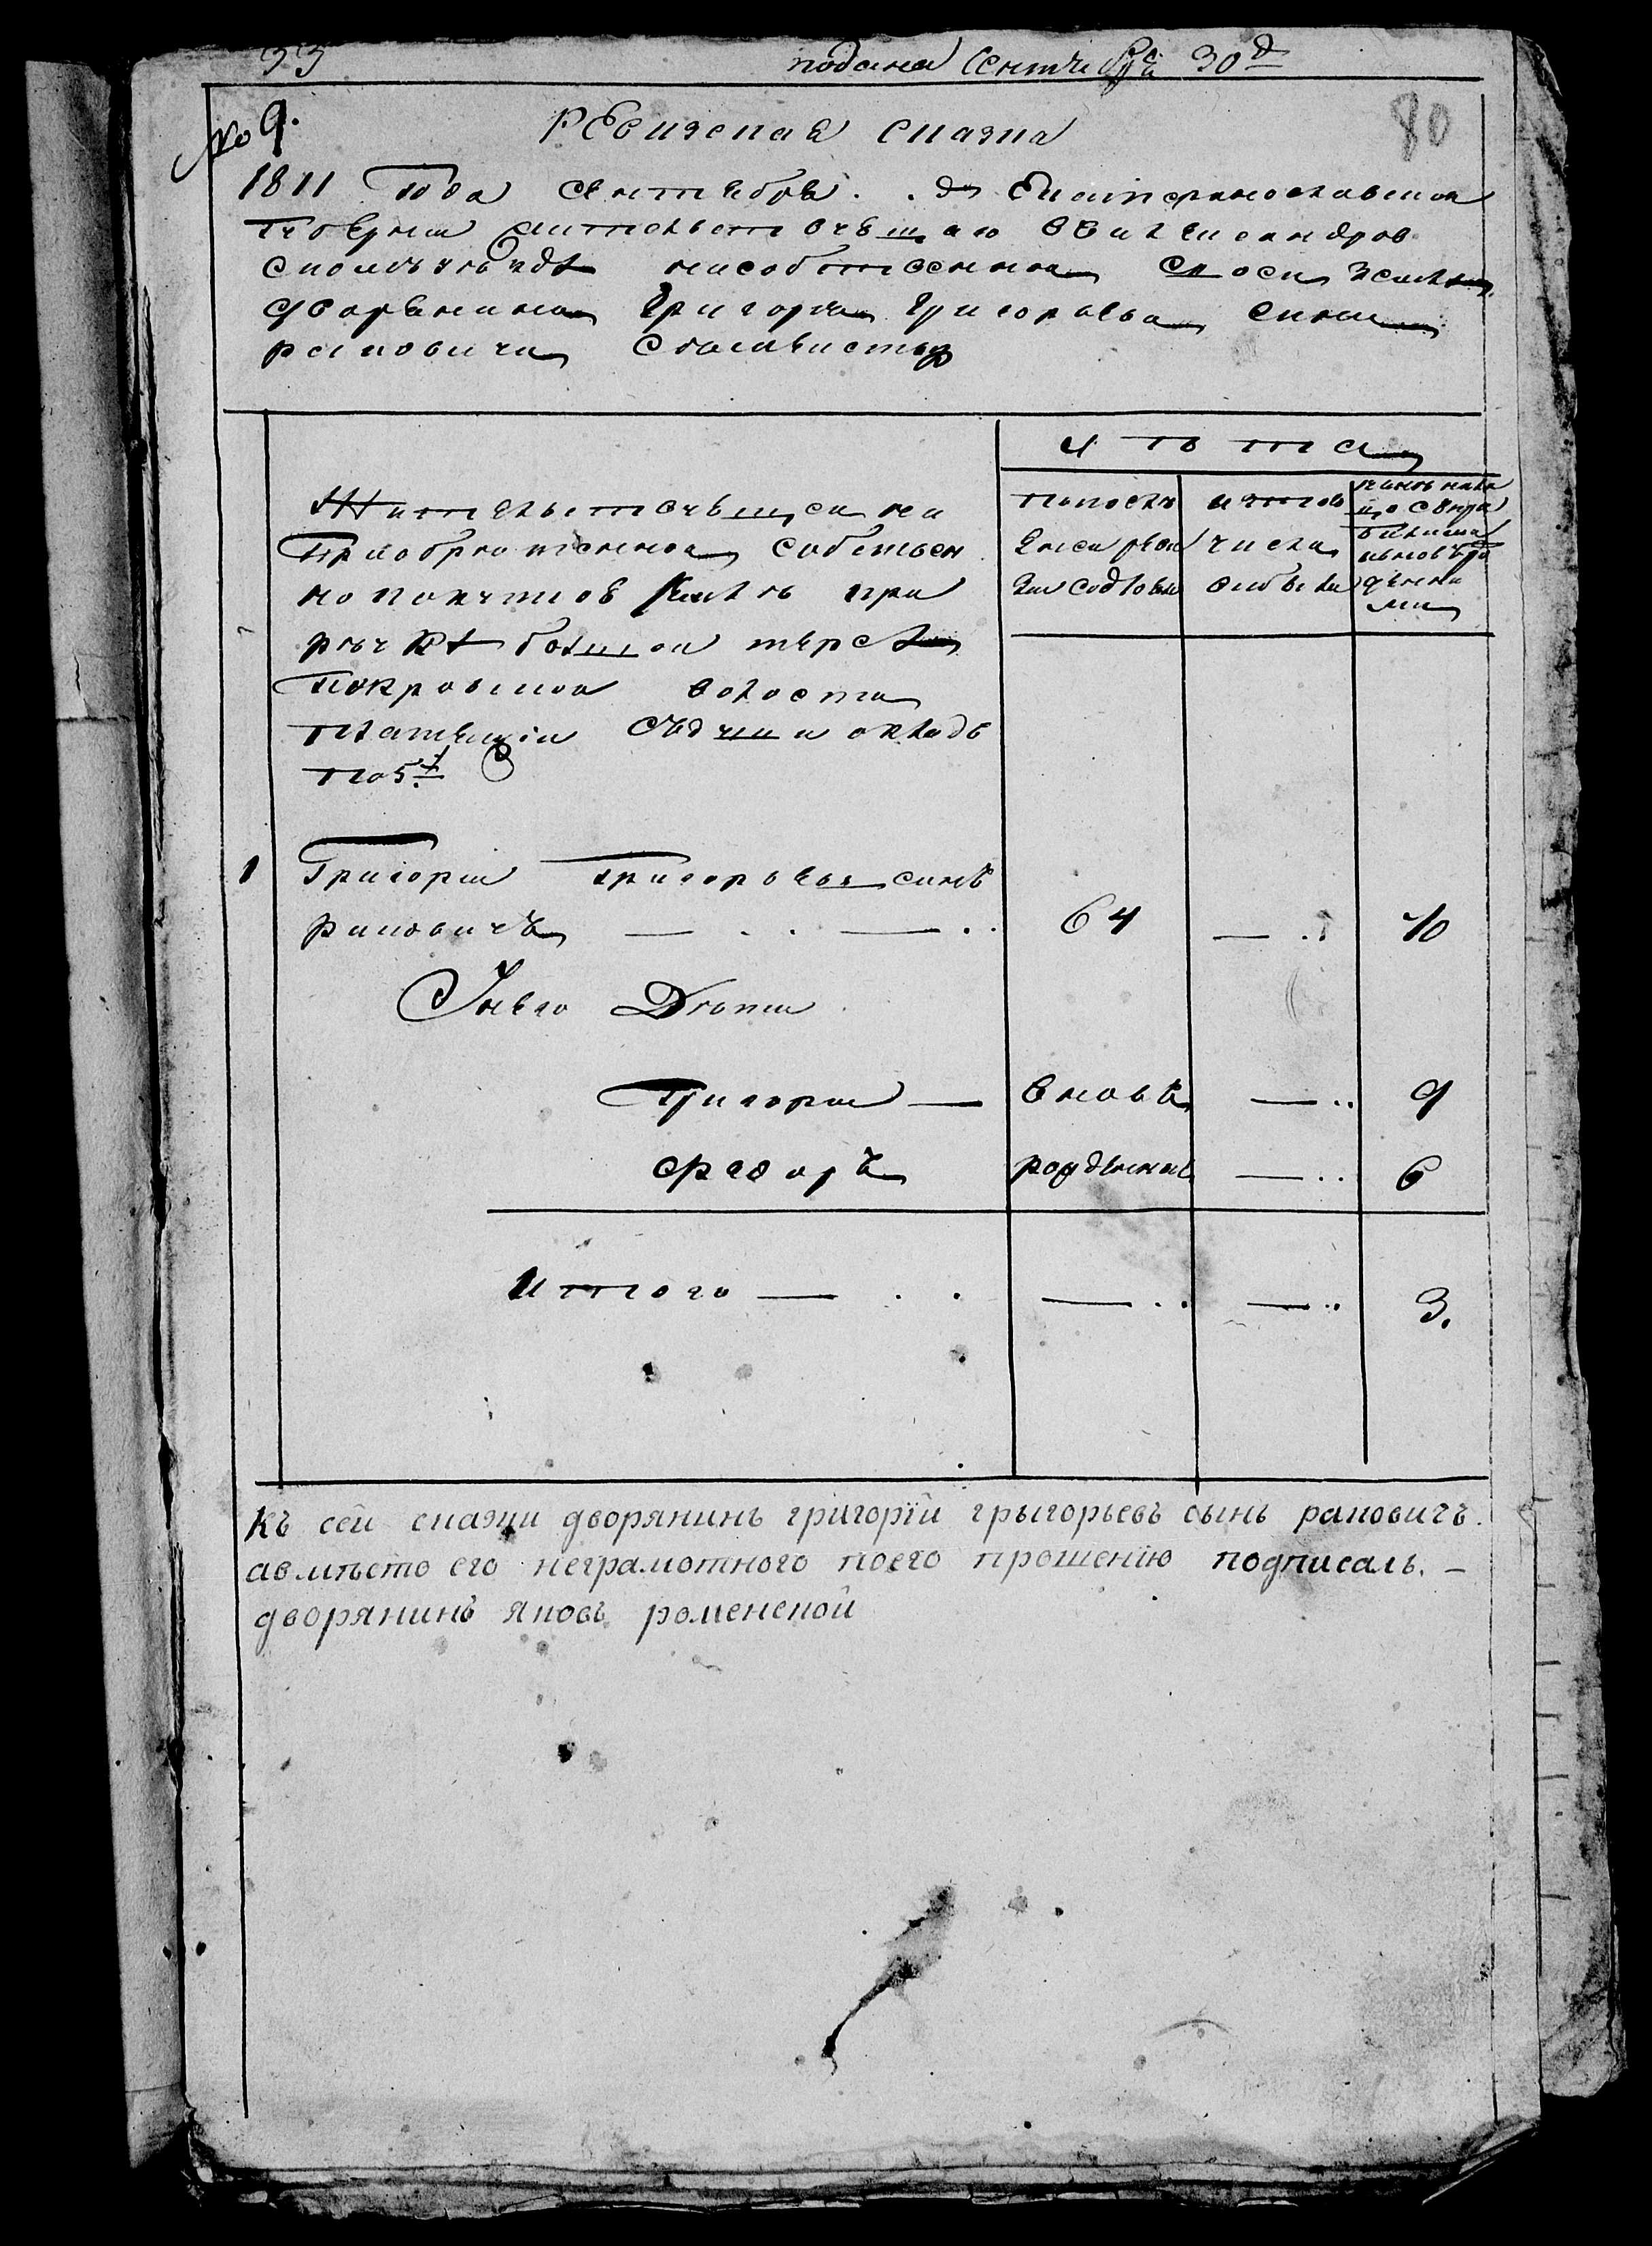 33
подана Сентября 30 д
80
№ 9.
РЕвизская сказка
1811 Года сентября . . дня Екатеринославской
Губернии жительствующаго в Александров
ском уезде на собственной своей земле
дворянина Григория Григорьева сина
раковича
лета
Жительствующи на
приобретенной собствен
но покупков земле при
речке болшой терсе
покровской волости
платящий с души окладъ
по 5
по последне
и ревизи
состояли
и того
числа
выбыли
1 Григорий григорьевъ синъ
раковичъ — . . — . . 64 — .. 70
У него Дети
Григории — вновь — .. 9
федоръ рожденные — .. 6
Итого — . . — . . — .. 3.
Къ сей сказки дворянинъ григорїй грыгорьевъ сынъ раковичъ.
авместо его неграмотного поего прошенїю подписалъ. —
дворянинъ яковъ роменской